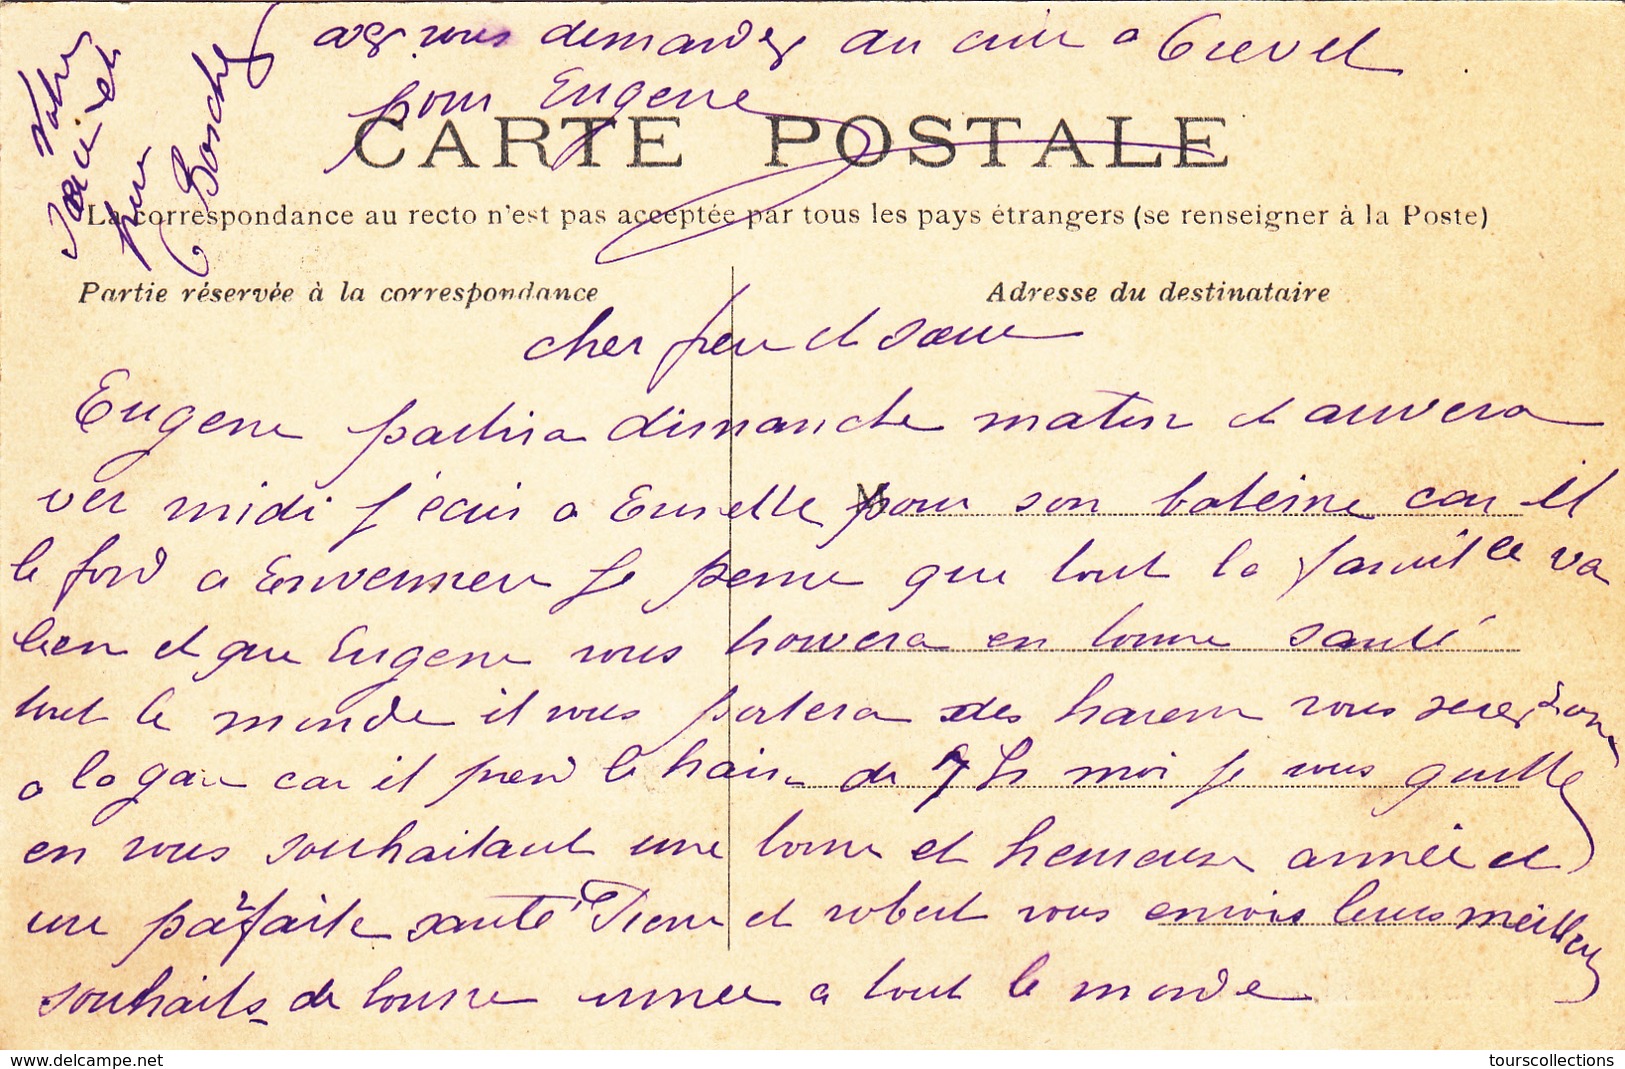 avez vous demandez au cuir a Crevel
pour Eugene
Votre
pour
Bosche
CARTE POSTALE
La correspondance au recto n'est pas acceptée par tous les pays étrangers (se renseigner à la Poste)
Partie réservée à la correspondance
Adresse du destinataire
cher frere et sœur
Eugene partira dimanche matin et arrivera
ver midi j'écris a pour son baleine car il
le ford a Envermeu je pense que tout la famille va
bien et que Eugene vous trouvera en bonne santé
tout le monde il vous portera des harens vous serez
a la gare car il prend le train de 7 h moi je vous quitte
en vous souhaitant une bonne et heureuse année et
une parfaite santé Pierre et robert vous envois leurs meilleurs
souhaits de bonne année a tout le monde
www.delcampe.net
tourscollections